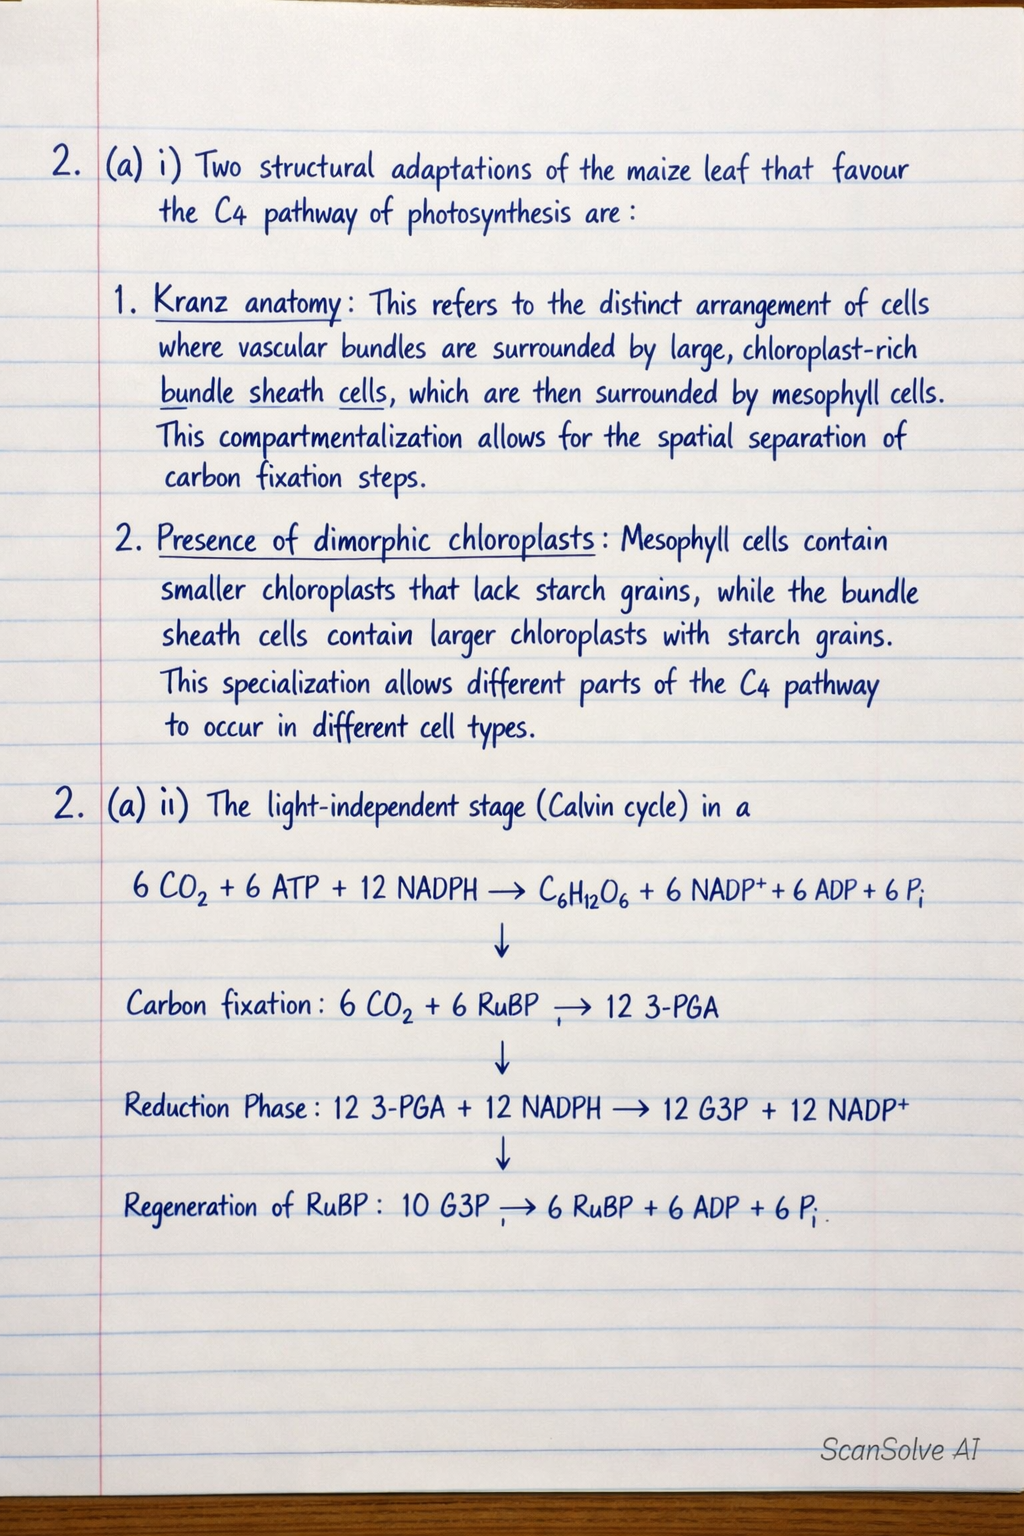 2. (a) i) Two structural adaptations of the maize leaf that favour
the C4 pathway of photosynthesis are :
1. Kranz anatomy : This refers to the distinct arrangement of cells
where vascular bundles are surrounded by large, chloroplast-rich
bundle sheath cells, which are then surrounded by mesophyll cells.
This compartmentalization allows for the spatial separation of
carbon fixation steps.
2. Presence of dimorphic chloroplasts : Mesophyll cells contain
smaller chloroplasts that lack starch grains, while the bundle
sheath cells contain larger chloroplasts with starch grains.
This specialization allows different parts of the C4 pathway
to occur in different cell types.
2. (a) ii) The light-independent stage (Calvin cycle) in a
6 CO₂ + 6 ATP + 12 NADPH → C₆H₁₂O₆ + 6 NADP⁺ + 6 ADP + 6 Pᵢ
↓
Carbon fixation : 6 CO₂ + 6 RuBP → 12 3-PGA
↓
Reduction Phase : 12 3-PGA + 12 NADPH → 12 G3P + 12 NADP⁺
↓
Regeneration of RuBP : 10 G3P → 6 RuBP + 6 ADP + 6 Pᵢ.
ScanSolve AI